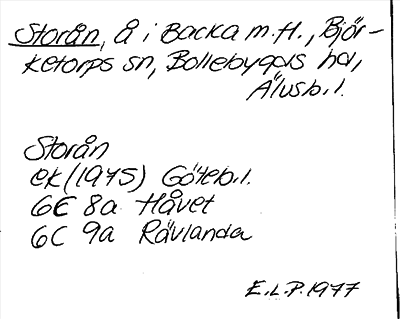 Storån, å i Backa m.fl., Björ-
ketorps sn, Bollebygds hd,
Älvsb.l.
Storån
ek (1975) Göteb.l.
6C 8a Håvet
6C 9a Rävlanda
E.L.P. 1977